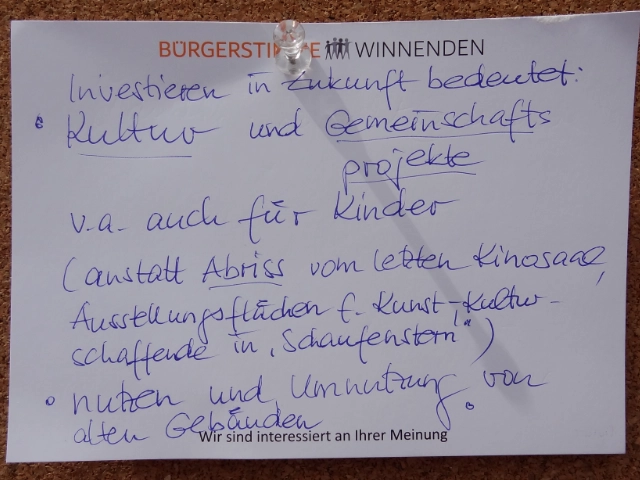 BÜRGERSTIMME WINNENDEN
Investieren in Zukunft bedeutet:
• Kultur und Gemeinschafts
projekte
v.a. auch für Kinder
(anstatt Abriss vom letzten Kinosaal,
Ausstellungsflächen f. Kunst-, Kultur-
schaffende in „Schaufenstern!")
• nutzen und Umnutzung von
alten Gebäuden.
Wir sind interessiert an Ihrer Meinung